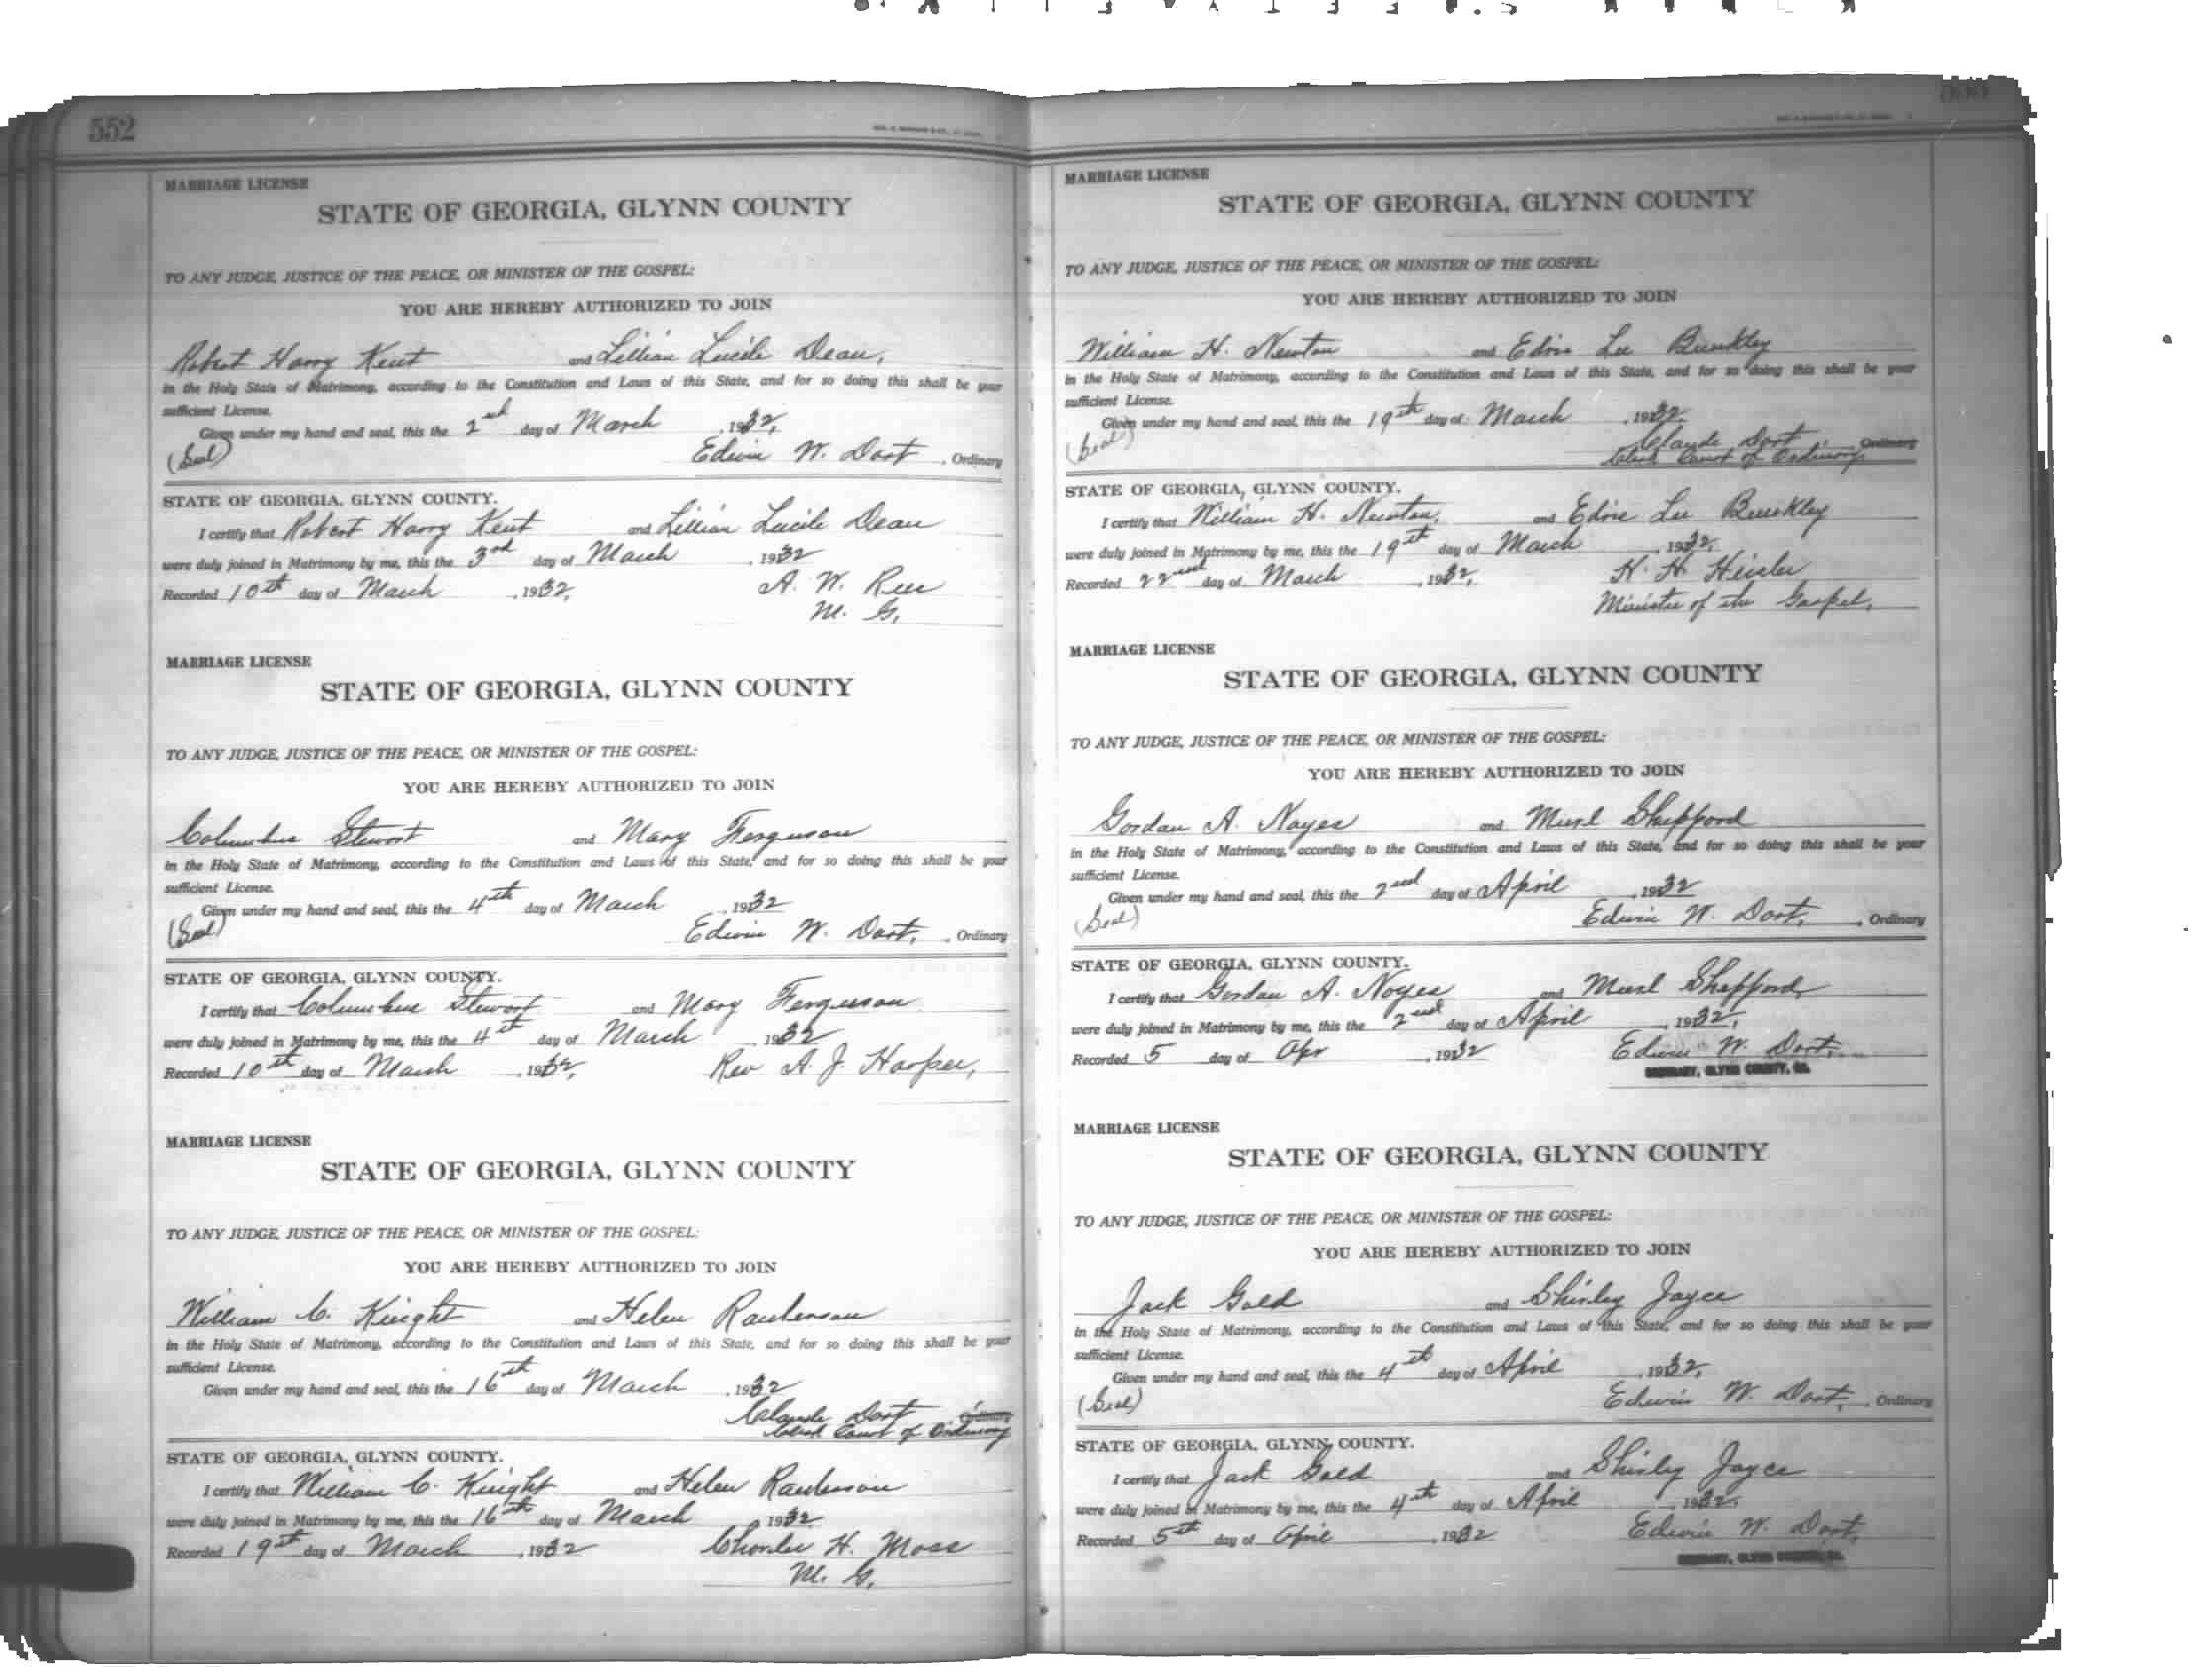 552
MARRIAGE LICENSE
STATE OF GEORGIA, GLYNN COUNTY
TO ANY JUDGE, JUSTICE OF THE PEACE, OR MINISTER OF THE GOSPEL:
YOU ARE HEREBY AUTHORIZED TO JOIN
Robert Harry Kent and Lillian Lucile Dean,
in the Holy State of Matrimony, according to the Constitution and Laws of this State, and for so doing this shall be your
sufficient License.
Given under my hand and seal, this the 2nd day of March, 1932,
(Seal) Edwin W. Dart, Ordinary
STATE OF GEORGIA, GLYNN COUNTY.
I certify that Robert Harry Kent and Lillian Lucile Dean
were duly joined in Matrimony by me, this the 3rd day of March, 1932
Recorded 10th day of March, 1932, A. W. Rees
M. G.
MARRIAGE LICENSE
STATE OF GEORGIA, GLYNN COUNTY
TO ANY JUDGE, JUSTICE OF THE PEACE, OR MINISTER OF THE GOSPEL:
YOU ARE HEREBY AUTHORIZED TO JOIN
Columbus Stewart and Mary Ferguson
in the Holy State of Matrimony, according to the Constitution and Laws of this State, and for so doing this shall be your
sufficient License.
Given under my hand and seal, this the 4th day of March, 1932
(Seal) Edwin W. Dart, Ordinary
STATE OF GEORGIA, GLYNN COUNTY.
I certify that Columbus Stewart and Mary Ferguson
were duly joined in Matrimony by me, this the 4th day of March 1932
Recorded 10th day of March, 1932, Rev A. J. Harper,
MARRIAGE LICENSE
STATE OF GEORGIA, GLYNN COUNTY
TO ANY JUDGE, JUSTICE OF THE PEACE, OR MINISTER OF THE GOSPEL:
YOU ARE HEREBY AUTHORIZED TO JOIN
William C. Knight and Helen Raulerson
in the Holy State of Matrimony, according to the Constitution and Laws of this State, and for so doing this shall be your
sufficient License.
Given under my hand and seal, this the 16th day of March, 1932
Claude Dart Ordinary
Clerk Court of Ordinary
STATE OF GEORGIA, GLYNN COUNTY.
I certify that William C. Knight and Helen Raulerson
were duly joined in Matrimony by me, this the 16th day of March 1932
Recorded 19th day of March, 1932 Charles H. Moss
M. G.
MARRIAGE LICENSE
STATE OF GEORGIA, GLYNN COUNTY
TO ANY JUDGE, JUSTICE OF THE PEACE, OR MINISTER OF THE GOSPEL:
YOU ARE HEREBY AUTHORIZED TO JOIN
William H. Newton and Edna Lee Bunkley
in the Holy State of Matrimony, according to the Constitution and Laws of this State, and for so doing this shall be your
sufficient License.
Given under my hand and seal, this the 19th day of March, 1932
(Seal) Claude Dart Ordinary
Clerk Court of Ordinary
STATE OF GEORGIA, GLYNN COUNTY.
I certify that William H. Newton, and Lee Bunkley
were duly joined in Matrimony by me, this the 19th day of March, 1932,
Recorded 22nd day of March, 1932, H. H.
Minister of the Gospel,
MARRIAGE LICENSE
STATE OF GEORGIA, GLYNN COUNTY
TO ANY JUDGE, JUSTICE OF THE PEACE, OR MINISTER OF THE GOSPEL:
YOU ARE HEREBY AUTHORIZED TO JOIN
Gordan A. Noyes and Murl Sheppard
in the Holy State of Matrimony, according to the Constitution and Laws of this State, and for so doing this shall be your
sufficient License.
Given under my hand and seal, this the 2nd day of April, 1932
(Seal) Edwin W. Dart, Ordinary
STATE OF GEORGIA, GLYNN COUNTY.
I certify that Gordan A. Noyes and Murl Sheppard,
were duly joined in Matrimony by me, this the 2nd day of April, 1932,
Recorded 5 day of Apr, 1932 Edwin W. Dart,
ORDINARY, GLYNN COUNTY, GA.
MARRIAGE LICENSE
STATE OF GEORGIA, GLYNN COUNTY
TO ANY JUDGE, JUSTICE OF THE PEACE, OR MINISTER OF THE GOSPEL:
YOU ARE HEREBY AUTHORIZED TO JOIN
Jack Gold and Shirley Jayce
in the Holy State of Matrimony, according to the Constitution and Laws of this State, and for so doing this shall be your
sufficient License.
Given under my hand and seal, this the 4th day of April, 1932,
(Seal) Edwin W. Dart, Ordinary
STATE OF GEORGIA, GLYNN COUNTY.
I certify that Jack Gold and Shirley Jayce
were duly joined in Matrimony by me, this the 4th day of April, 1932,
Recorded 5th day of April, 1932 Edwin W. Dart,
ORDINARY, GLYNN COUNTY, GA.